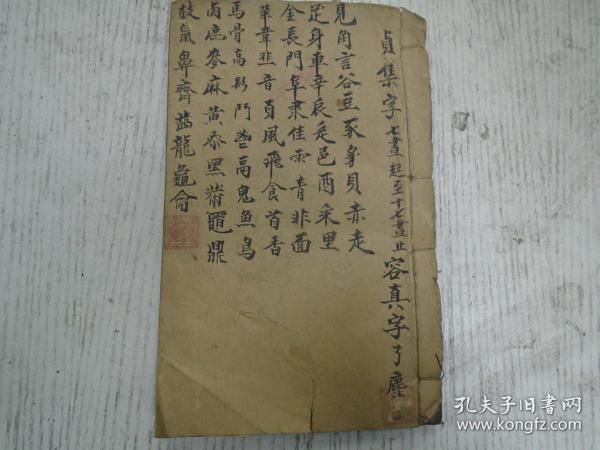 貞集字七畫起至十七畫止 容真字了塵
見角言谷豆豕豸貝赤走
足身車辛辰辵邑酉釆里
金長門阜隶隹雨青非面
革韋韭音頁風飛食首香
馬骨高髟鬥鬯鬲鬼魚鳥
鹵鹿麥麻黃黍黑黹黽鼎
鼓鼠鼻齊齒龍龜龠
孔夫子旧书网
www.kongfz.com